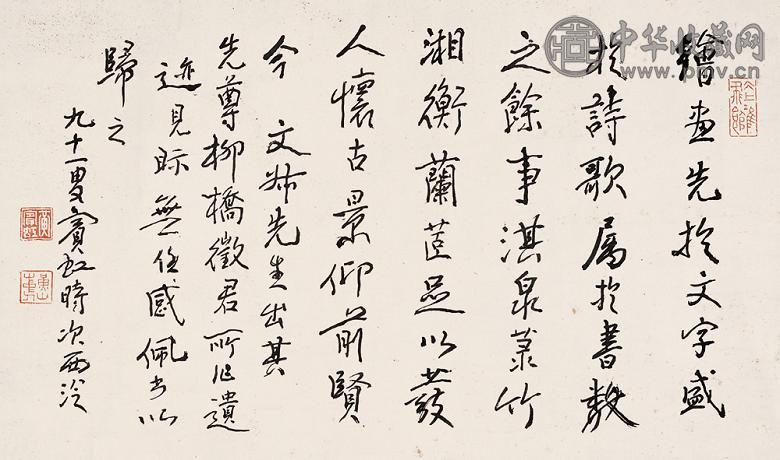 繪畫先於文字盛
於詩歌属於書數
之餘事淇泉菉竹
湘衡蘭茝足以發
人懷古景仰前賢
今 文姊先生出其
先尊柳橋徵君所作遺
迹見眎無任感佩書以
歸之
九十一叟賓虹時次西泠
中华收藏网